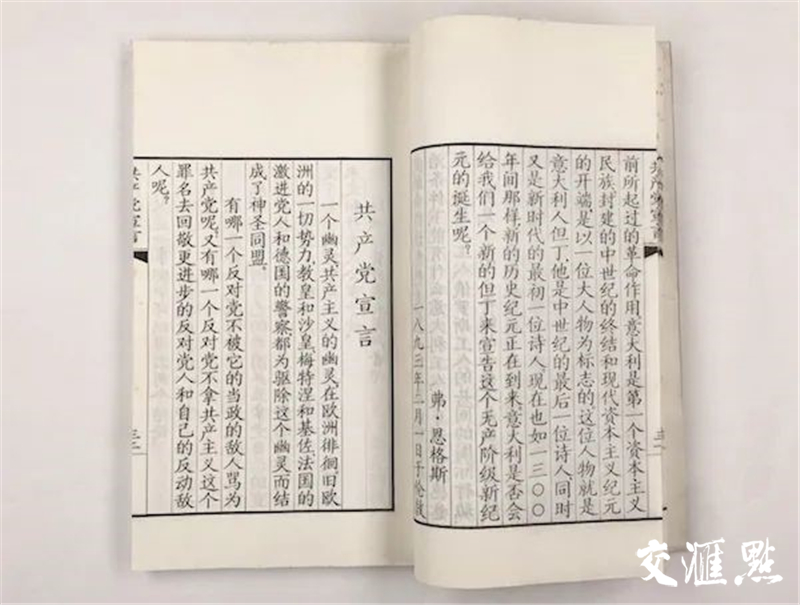 共产党宣言
前所起过的革命作用。意大利是第一个资本主义
民族。封建的中世纪的终结和现代资本主义纪元
的开端,是以一位大人物为标志的。这位人物就是
意大利人但丁,他是中世纪的最后一位诗人,同时
又是新时代的最初一位诗人。现在也如一三〇〇
年间那样,新的历史纪元正在到来。意大利是否会
给我们一个新的但丁来宣告这个无产阶级新纪
元的诞生呢?
弗·恩格斯
一八九三年二月一日于伦敦
共产党宣言
一个幽灵,共产主义的幽灵,在欧洲徘徊。旧欧
洲的一切势力,教皇和沙皇、梅特涅和基佐、法国的
激进党人和德国的警察,都为驱除这个幽灵而结
成了神圣同盟。
有哪一个反对党不被它的当政的敌人骂为
共产党呢?又有哪一个反对党不拿共产主义这个
罪名去回敬更进步的反对党人和自己的反动敌
人呢?
共产党宣言
三二
交滙點